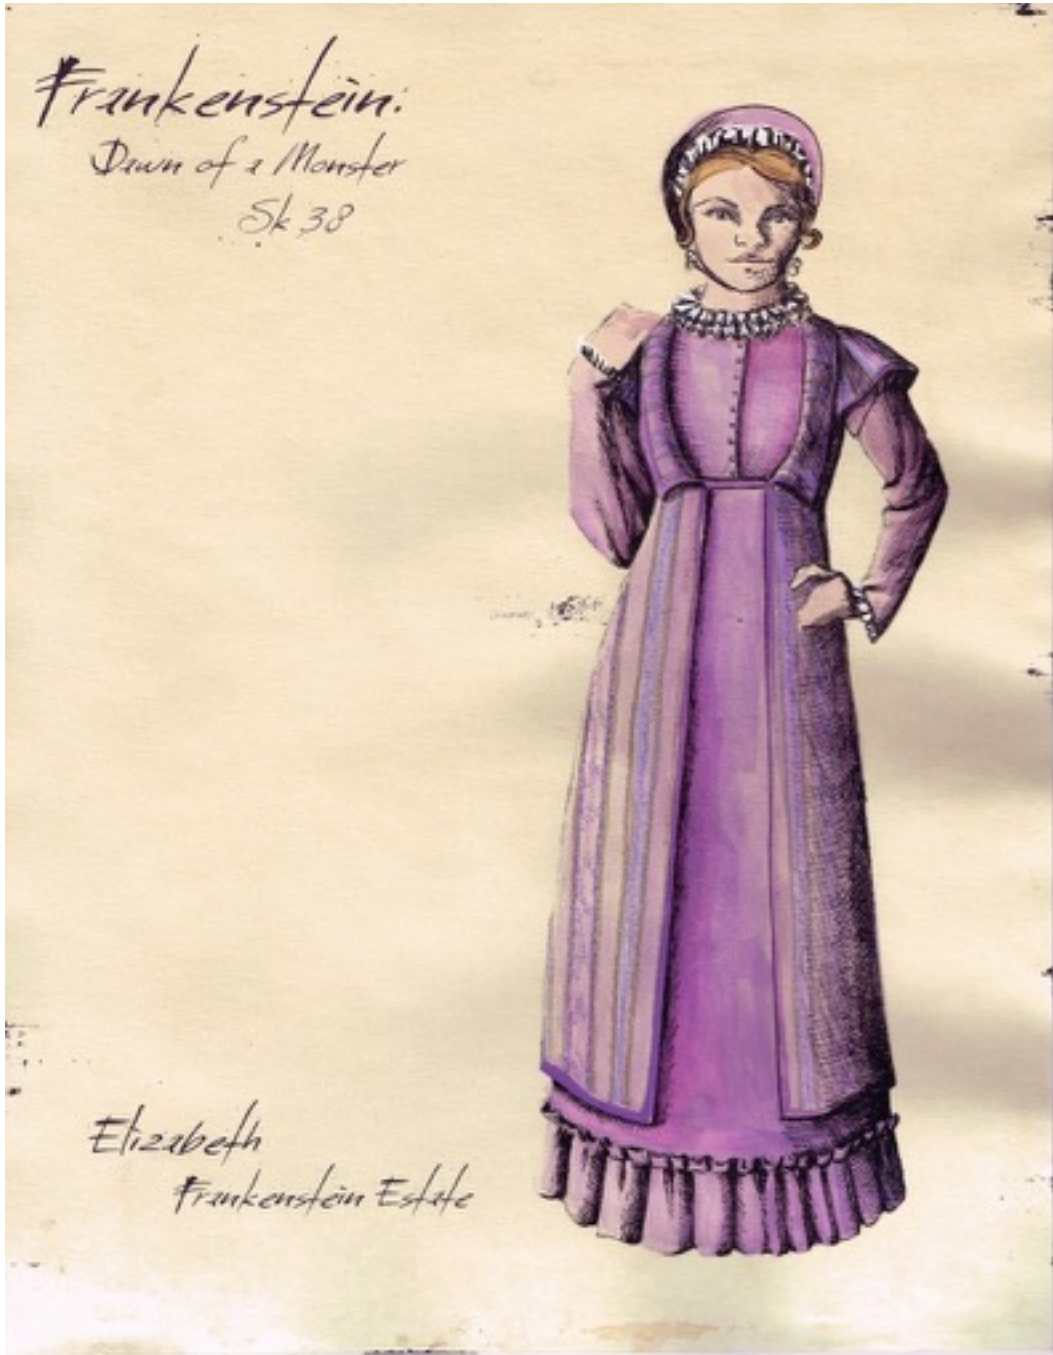 Frankenstein:
Dawn of a Monster
Sk 38
Elizabeth
Frankenstein Estate